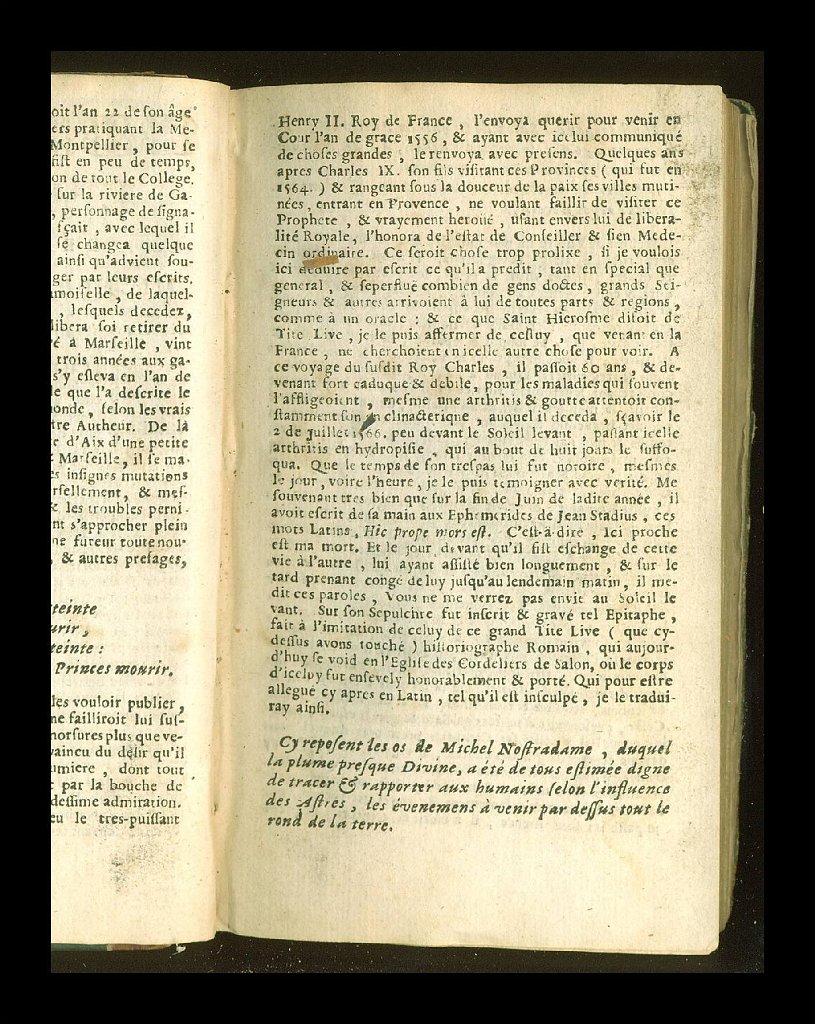 oit l'an 22 de ſon âge
ers pratiquant la Me-
Montpellier, pour ſe
fiſt en peu de temps,
on de tout le College.
ſur la riviere de Ga-
, perſonnage de ſigna-
ſçait , avec lequel il
ſe changea quelque
ainſi qu'advient ſou-
ger par leurs eſcrits.
moiſelle , de laquel-
, leſquels decedez,
libera ſoi retirer du
é à Marſeille , vint
trois années aux ga-
s'y eſleva en l'an de
le que l'a deſcrite le
onde , ſelon les vrais
tre Autheur. De là
e d'Aix d'une petite
Marſeille, il ſe ma-
es inſignes mutations
rſellement, & meſ-
& les troubles perni-
nt s'approcher plein
ne fureur toute nou-
, & autres preſages,
teinte
urir ,
teinte :
Princes mourir.
les vouloir publier ,
ne failliroit lui ſuſ-
morſures plus que ve-
vaincu du déſir qu'il
umiere , dont tout
par la bouche de
deſſime admiration.
eu le tres-puiſſant
Henry II. Roy de France , l'envoya querir pour venir en
Cour l'an de grace 1556 , & ayant avec icelui communiqué
de choſes grandes , le renvoya avec preſens. Quelques ans
apres Charles IX. ſon fils viſitant ces Provinces ( qui fut en
1564. ) & rangeant ſous la douceur de la paix ſes villes muti-
nées , entrant en Provence , ne voulant faillir de viſiter ce
Prophete , & vrayement heroïié , uſant envers lui de libera-
lité Royale , l'honora de l'eſtat de Conſeiller & ſien Mede-
cin ordinaire. Ce ſeroit choſe trop prolixe , ſi je voulois
ici deduire par eſcrit ce qu'il a predit , tant en ſpecial que
general , & ſeperfluë combien de gens doctes , grands Sei-
gneurs & autres arrivoient à lui de toutes parts & regions ,
comme à un oracle : & ce que Saint Hieroſme diſoit de
Tite Live , je le puis affermer de ceſtuy , que venant en la
France , ne cherchoient en icelle autre choſe pour voir. A
ce voyage du ſuſdit Roy Charles , il paſſoit 60 ans , & de-
venant fort caduque & debile, pour les maladies qui ſouvent
l'affligeoient , meſme une arthritis & goutte attentoit con-
ſtamment ſon an clinacterique , auquel il deceda , ſçavoir le
2 de Juillet 1566. peu devant le Soleil levant , paſſant icelle
arthritis en hydropiſie , qui au bout de huit jours le ſuffo-
qua. Que le temps de ſon treſpas lui fut notoire , meſmes
le jour , voire l'heure , je le puis temoigner avec verité. Me
ſouvenant tres bien que ſur la fin de Juin de ladite année , il
avoit eſcrit de ſa main aux Ephemerides de Jean Stadius , ces
mots Latins , Hic prope mors eſt. C'eſt-à-dire , Ici proche
eſt ma mort. Et le jour devant qu'il fiſt eſchange de cette
vie à l'autre , lui ayant aſſiſté bien longuement , & ſur le
tard prenant congé de luy juſqu'au lendemain matin , il me-
dit ces paroles , Vous ne me verrez pas envie au Soleil le
vant. Sur ſon Sepulchre fut inſcrit & gravé tel Epitaphe ,
fait à l'imitation de celuy de ce grand Tite Live ( que cy-
deſſus avons touché ) hiſtoriographe Romain , qui aujour-
d'huy ſe void en l'Egliſe des Cordeliers de Salon, où le corps
d'iceluy fut enſevely honorablement & porté. Qui pour eſtre
allegué cy apres en Latin , tel qu'il eſt inſculpé , je le tradui-
ray ainſi.
Cy repoſent les os de Michel Noſtradame , duquel
la plume preſque Divine, a été de tous eſtimée digne
de tracer & rapporter aux humains ſelon l'influence
des Aſtres , les évenemens à venir par deſſus tout le
rond de la terre.